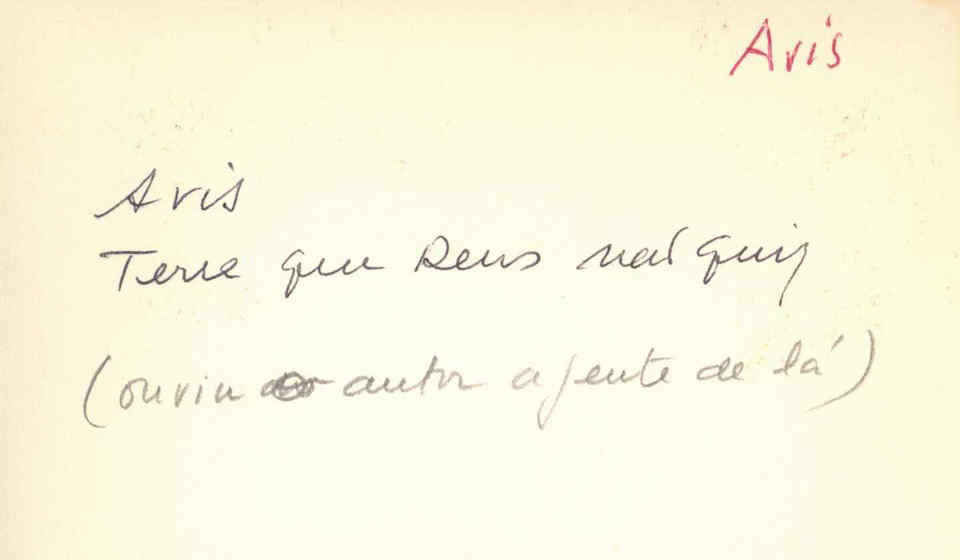 Avis
Avis
Terra que Deus não quis
(ouviu o autor a gente de lá)